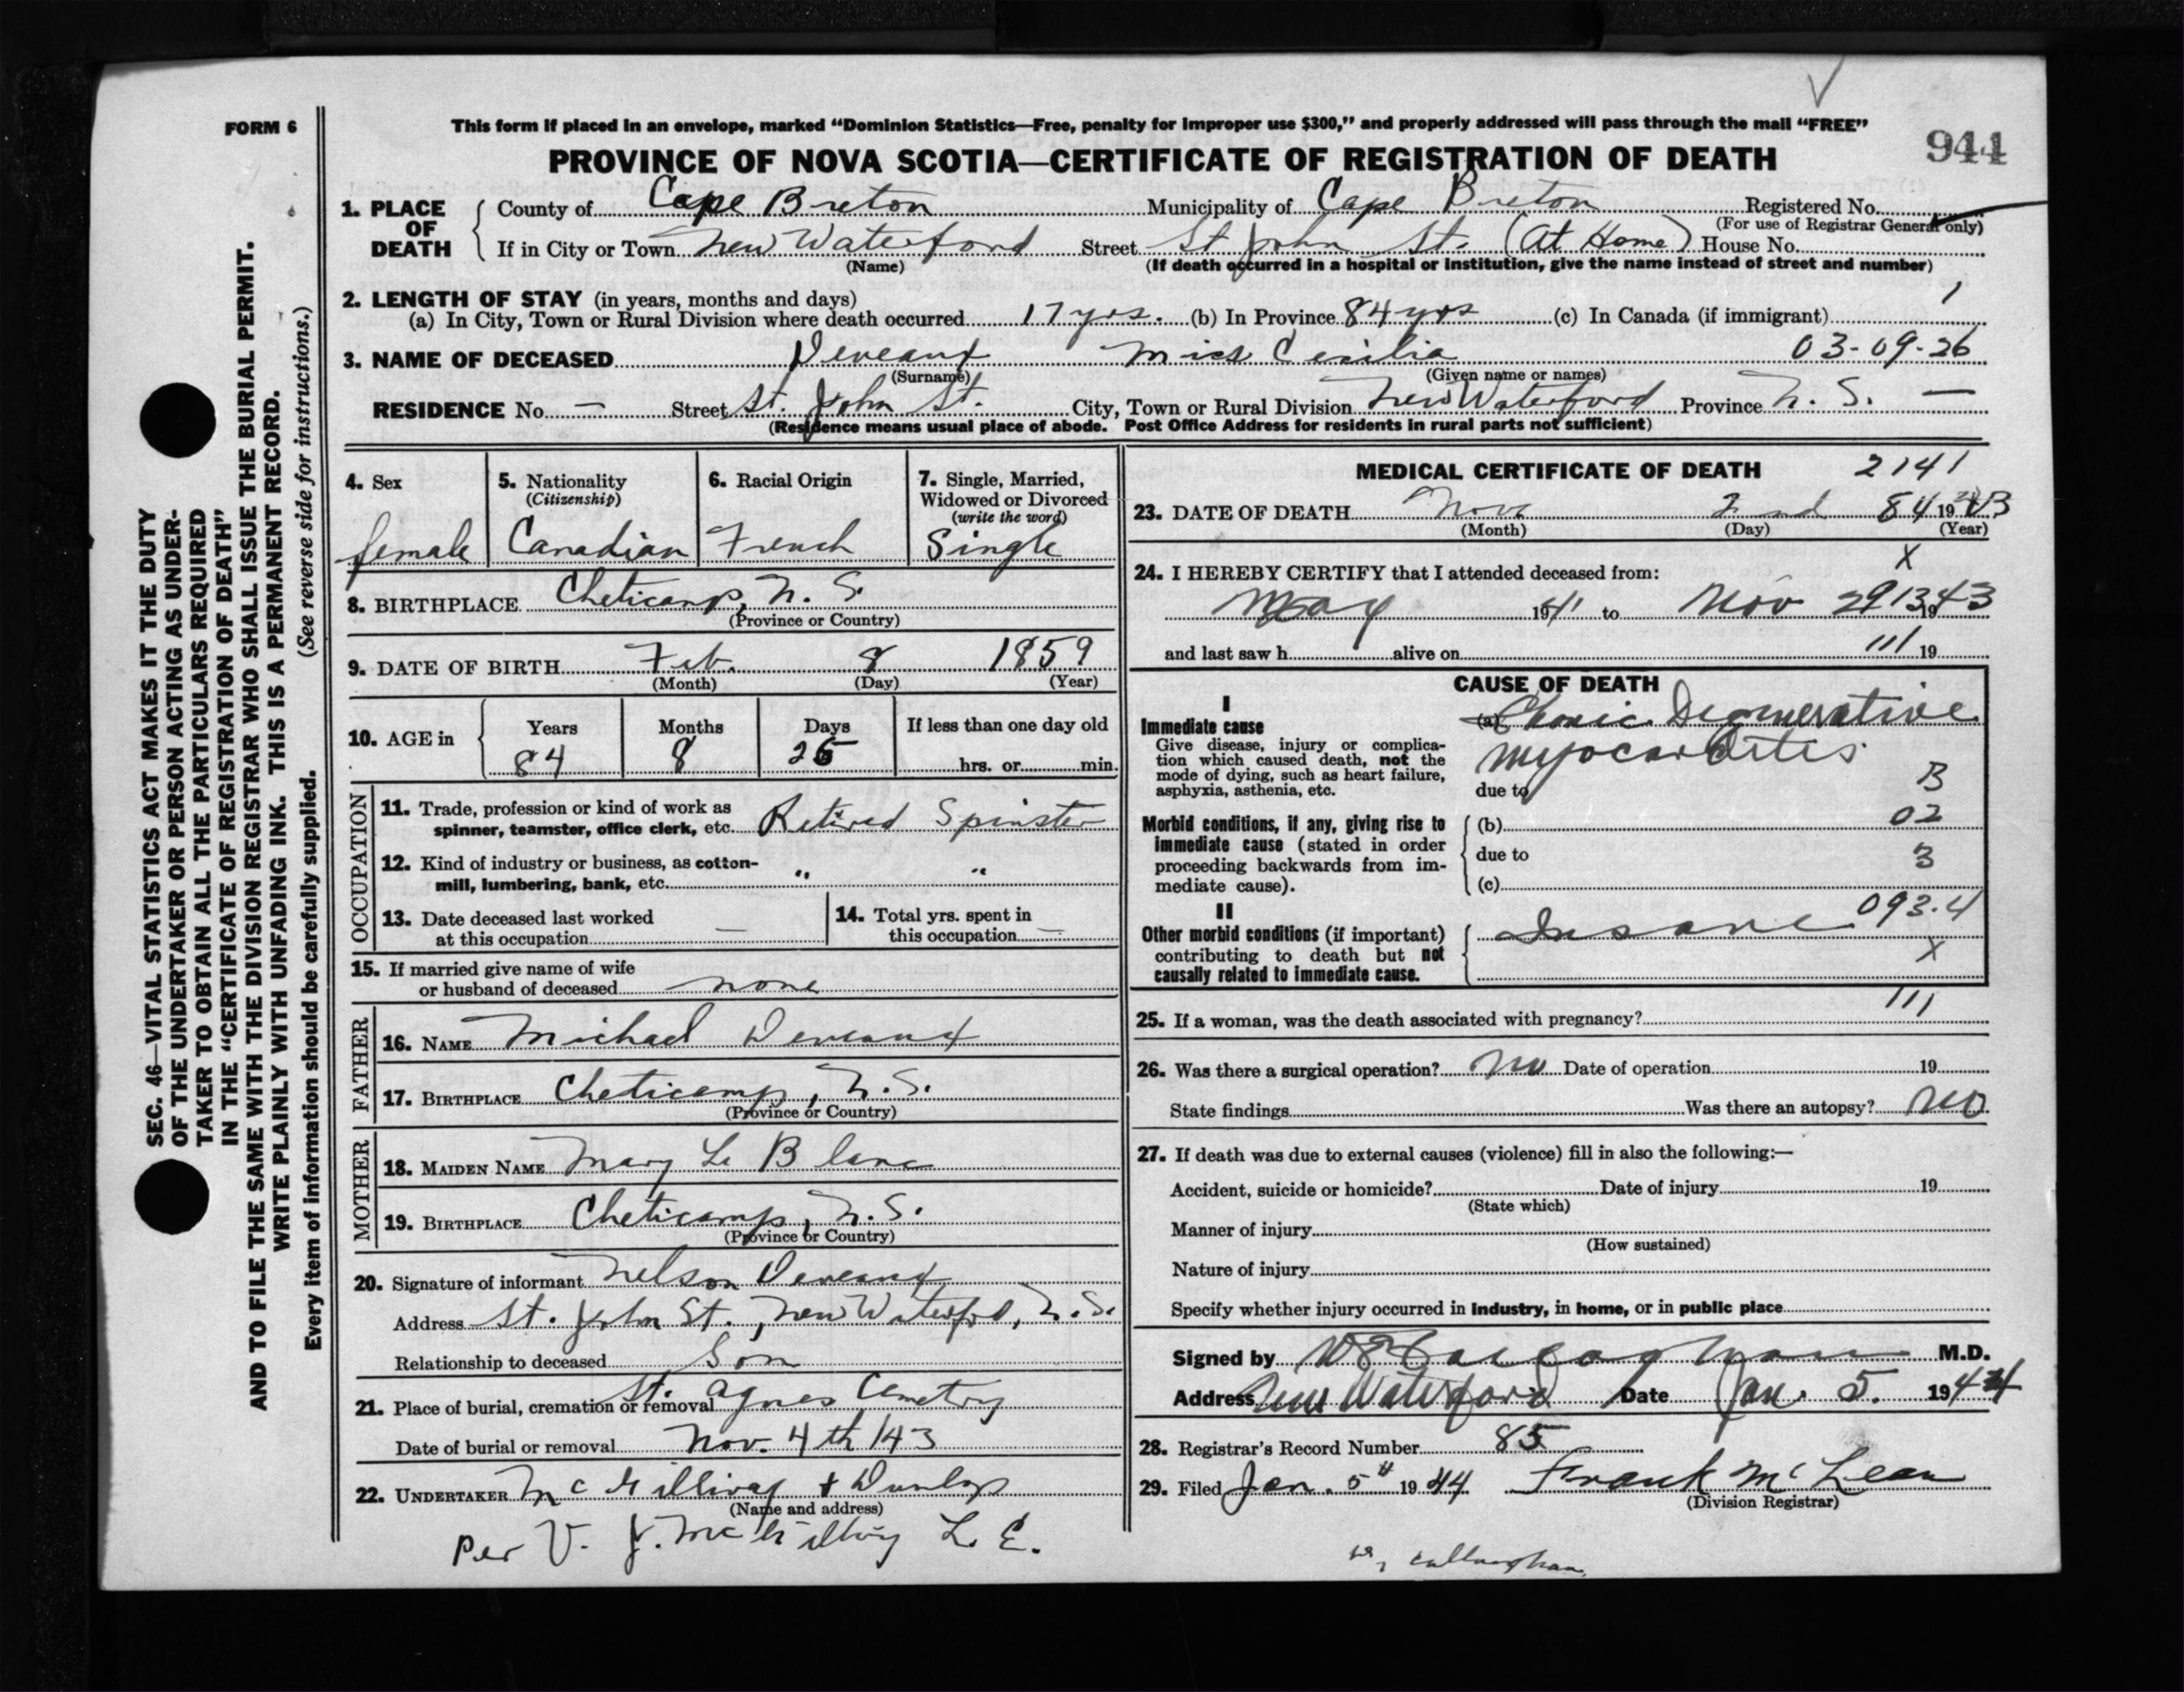 FORM 6
This form if placed in an envelope, marked “Dominion Statistics—Free, penalty for improper use $300,” and properly addressed will pass through the mail “FREE”
PROVINCE OF NOVA SCOTIA—CERTIFICATE OF REGISTRATION OF DEATH
944
1. PLACE OF DEATH
County of Cape Breton Municipality of Cape Breton Registered No.
(For use of Registrar General only)
If in City or Town New Waterford Street St John St. (At Home) House No.
(Name) (If death occurred in a hospital or institution, give the name instead of street and number)
2. LENGTH OF STAY (in years, months and days)
(a) In City, Town or Rural Division where death occurred 17 yrs. (b) In Province 84 yrs (c) In Canada (if immigrant) 1
3. NAME OF DECEASED Deveaux Miss Cecilia 03-09-26
(Surname) (Given name or names)
RESIDENCE No. — Street St. John St. City, Town or Rural Division New Waterford Province N. S. —
(Residence means usual place of abode. Post Office Address for residents in rural parts not sufficient)
4. Sex female
5. Nationality (Citizenship) Canadian
6. Racial Origin French
7. Single, Married, Widowed or Divorced (write the word) Single
8. BIRTHPLACE Cheticamp, N. S.
(Province or Country)
9. DATE OF BIRTH Feb. 8 1859
(Month) (Day) (Year)
10. AGE in Years 84 Months 8 Days 25 If less than one day old hrs. or min.
OCCUPATION
11. Trade, profession or kind of work as
spinner, teamster, office clerk, etc. Retired Spinster
12. Kind of industry or business, as cotton-
mill, lumbering, bank, etc. " "
13. Date deceased last worked
at this occupation —
14. Total yrs. spent in
this occupation —
15. If married give name of wife
or husband of deceased none
FATHER
16. NAME Michael Deveaux
17. BIRTHPLACE Cheticamp, N.S.
(Province or Country)
MOTHER
18. MAIDEN NAME Mary Le Blanc
19. BIRTHPLACE Cheticamp, N.S.
(Province or Country)
20. Signature of informant Nelson Deveaux
Address St. John St., New Waterford, N.S.
Relationship to deceased Son
21. Place of burial, cremation or removal St. Agnes Cemetry
Date of burial or removal Nov. 4th /43
22. UNDERTAKER McGillivay & Dunlop
(Name and address)
Per V. J. McGillivy L. E.
MEDICAL CERTIFICATE OF DEATH 2141
23. DATE OF DEATH Nov 2nd 84 19
(Month) (Day) (Year)
X
24. I HEREBY CERTIFY that I attended deceased from:
May 1941 to Nov 1943
and last saw h alive on 111 19
CAUSE OF DEATH
I
Immediate cause
Give disease, injury or complica-
tion which caused death, not the
mode of dying, such as heart failure,
asphyxia, asthenia, etc.
(a) Chronic Degenerative
myocarditis
due to B
Morbid conditions, if any, giving rise to
immediate cause (stated in order
proceeding backwards from im-
mediate cause).
(b) 02
due to 3
(c)
II
Other morbid conditions (if important)
contributing to death but not
causally related to immediate cause.
Insane 093.4
X
25. If a woman, was the death associated with pregnancy? 111
26. Was there a surgical operation? No Date of operation 19
State findings Was there an autopsy? No
27. If death was due to external causes (violence) fill in also the following:—
Accident, suicide or homicide? Date of injury 19
(State which)
Manner of injury
(How sustained)
Nature of injury
Specify whether injury occurred in industry, in home, or in public place
Signed by M.D.
Address New Waterford Date Jan. 5. 1944
28. Registrar's Record Number 85
29. Filed Jan. 5" 1944 Frank McLean
(Division Registrar)
SEC. 46—VITAL STATISTICS ACT MAKES IT THE DUTY
OF THE UNDERTAKER OR PERSON ACTING AS UNDER-
TAKER TO OBTAIN ALL THE PARTICULARS REQUIRED
IN THE “CERTIFICATE OF REGISTRATION OF DEATH”
AND TO FILE THE SAME WITH THE DIVISION REGISTRAR WHO SHALL ISSUE THE BURIAL PERMIT.
WRITE PLAINLY WITH UNFADING INK. THIS IS A PERMANENT RECORD.
Every item of information should be carefully supplied. (See reverse side for instructions.)